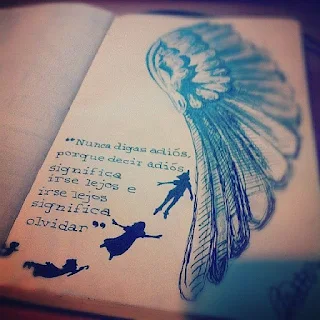 "Nunca digas adiós,
porque decir adiós
significa
irse lejos e
irse lejos
significa
olvidar"